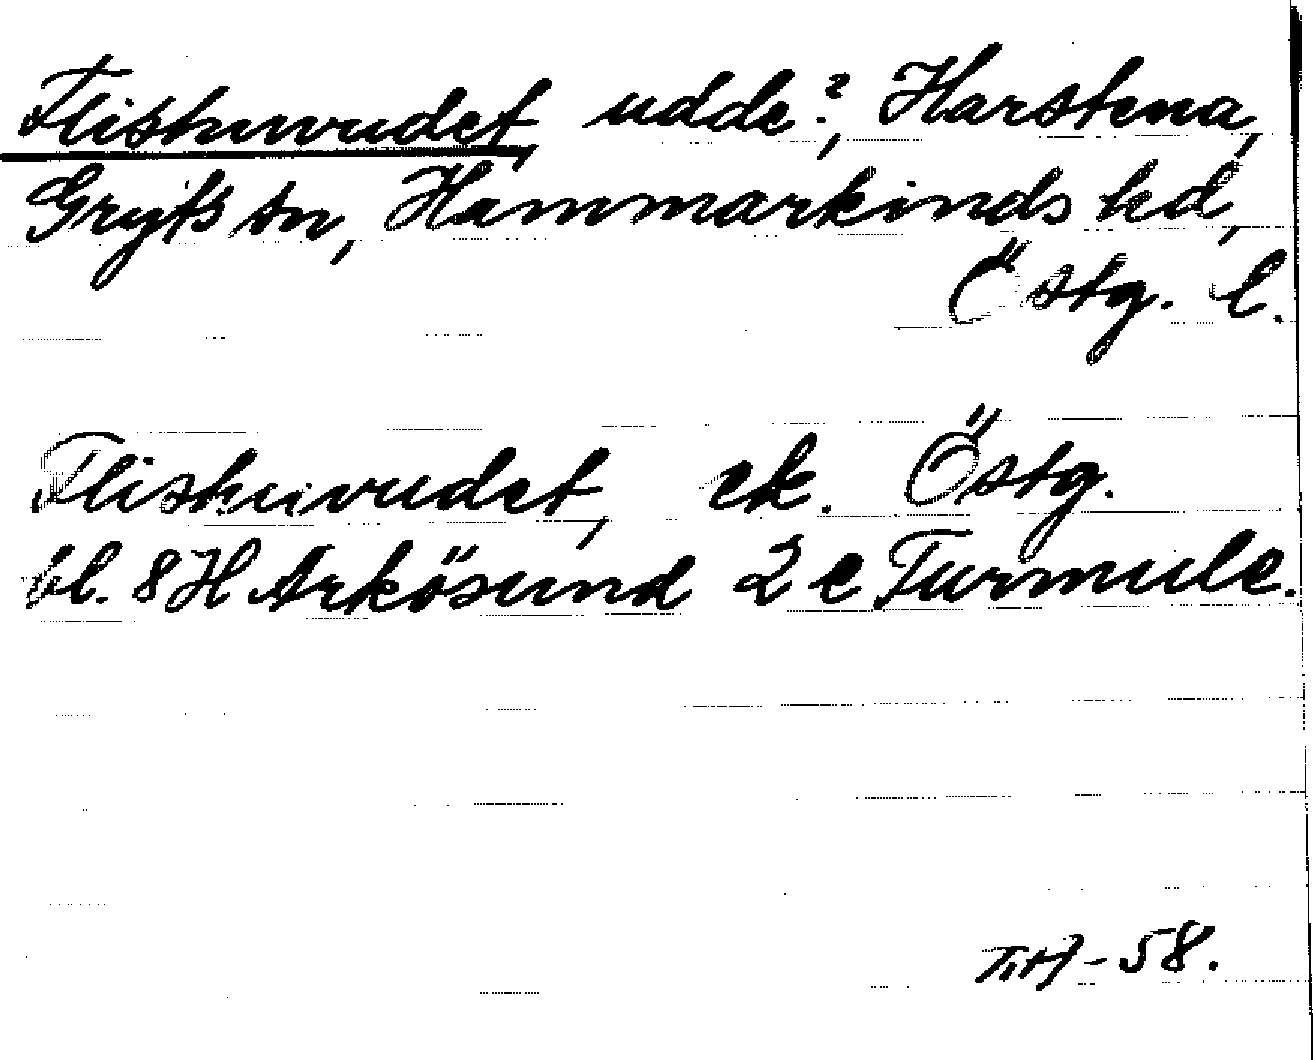 Flishuvudet, udde?, Harstena,
Gryts sn, Hammarkinds hd,
Östg. l.
Flishuvudet, ek. Östg.
bl. 8H Arkösund 2 e Turmule.
-58.